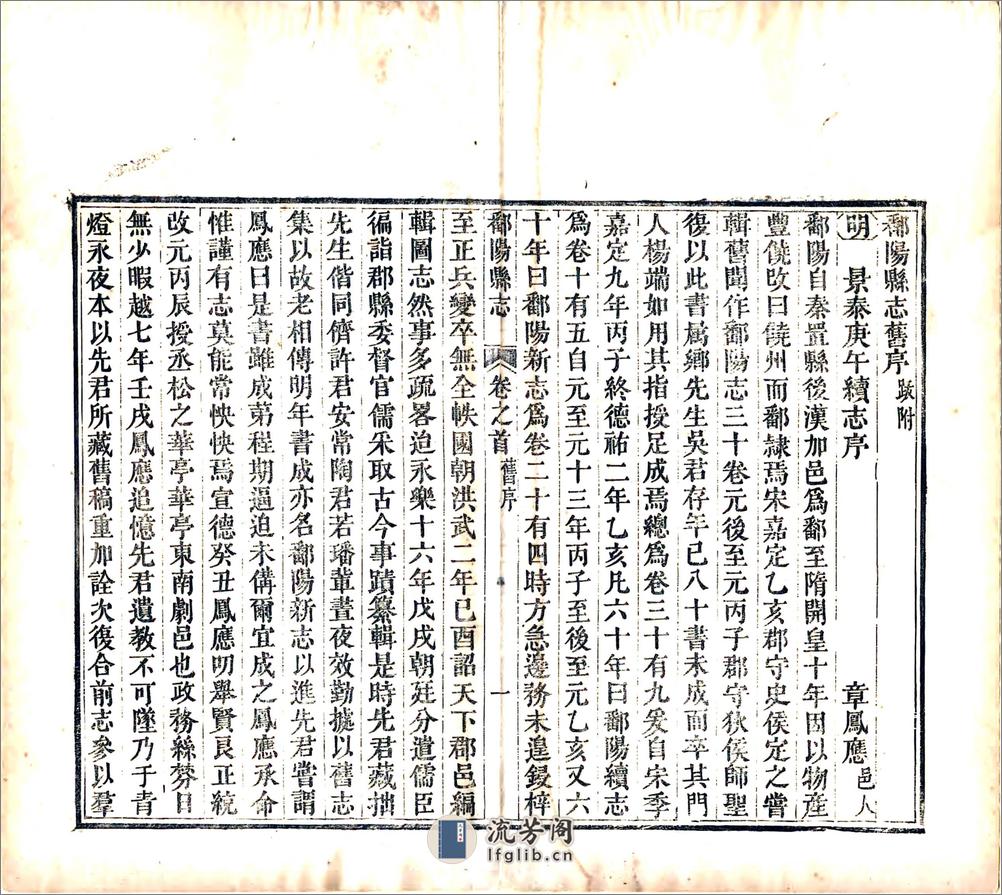 鄱陽縣志舊序 跋附
明 景泰庚午續志序 章鳳應 邑人
鄱陽自秦置縣後漢加邑爲鄱至隋開皇十年因以物產
豐饒改曰饒州而鄱隸焉宋嘉定乙亥郡守史侯定之嘗
輯舊聞作鄱陽志三十卷元後至元丙子郡守狄侯師聖
復以此書属鄉先生吳君存年已八十書未成而卒其門
人楊端如用其指授足成焉總爲卷三十有九爰自宋季
嘉定九年丙子終德祐二年乙亥凡六十年曰鄱陽續志
爲卷十有五自元至元十三年丙子至後至元乙亥又六
十年曰鄱陽新志爲卷二十有四時方急邊務未遑鋟梓
鄱陽縣志 卷之首 舊序 一
至正兵變卒無全帙國朝洪武二年已酉詔天下郡邑編
輯圖志然事多疏畧迨永樂十六年戊戌朝廷分遣儒臣
徧詣郡縣委督官儒采取古今事蹟纂輯是時先君藏拙
先生偕同儕許君安常陶君若璠輩晝夜效勤據以舊志
集以故老相傳明年書成亦名鄱陽新志以進先君嘗謂
鳳應曰是書雖成第程期逼迫未備爾宜成之鳳應承命
惟謹有志莫能常怏怏焉宣德癸丑鳳應叨舉賢良正統
改元丙辰授丞松之華亭華亭東南劇邑也政務絲棼日
無少暇越七年壬戌鳳應追憶先君遺教不可墜乃于青
燈永夜本以先君所藏舊稿重加詮次復合前志參以羣
流芳阁
lfglib.cn